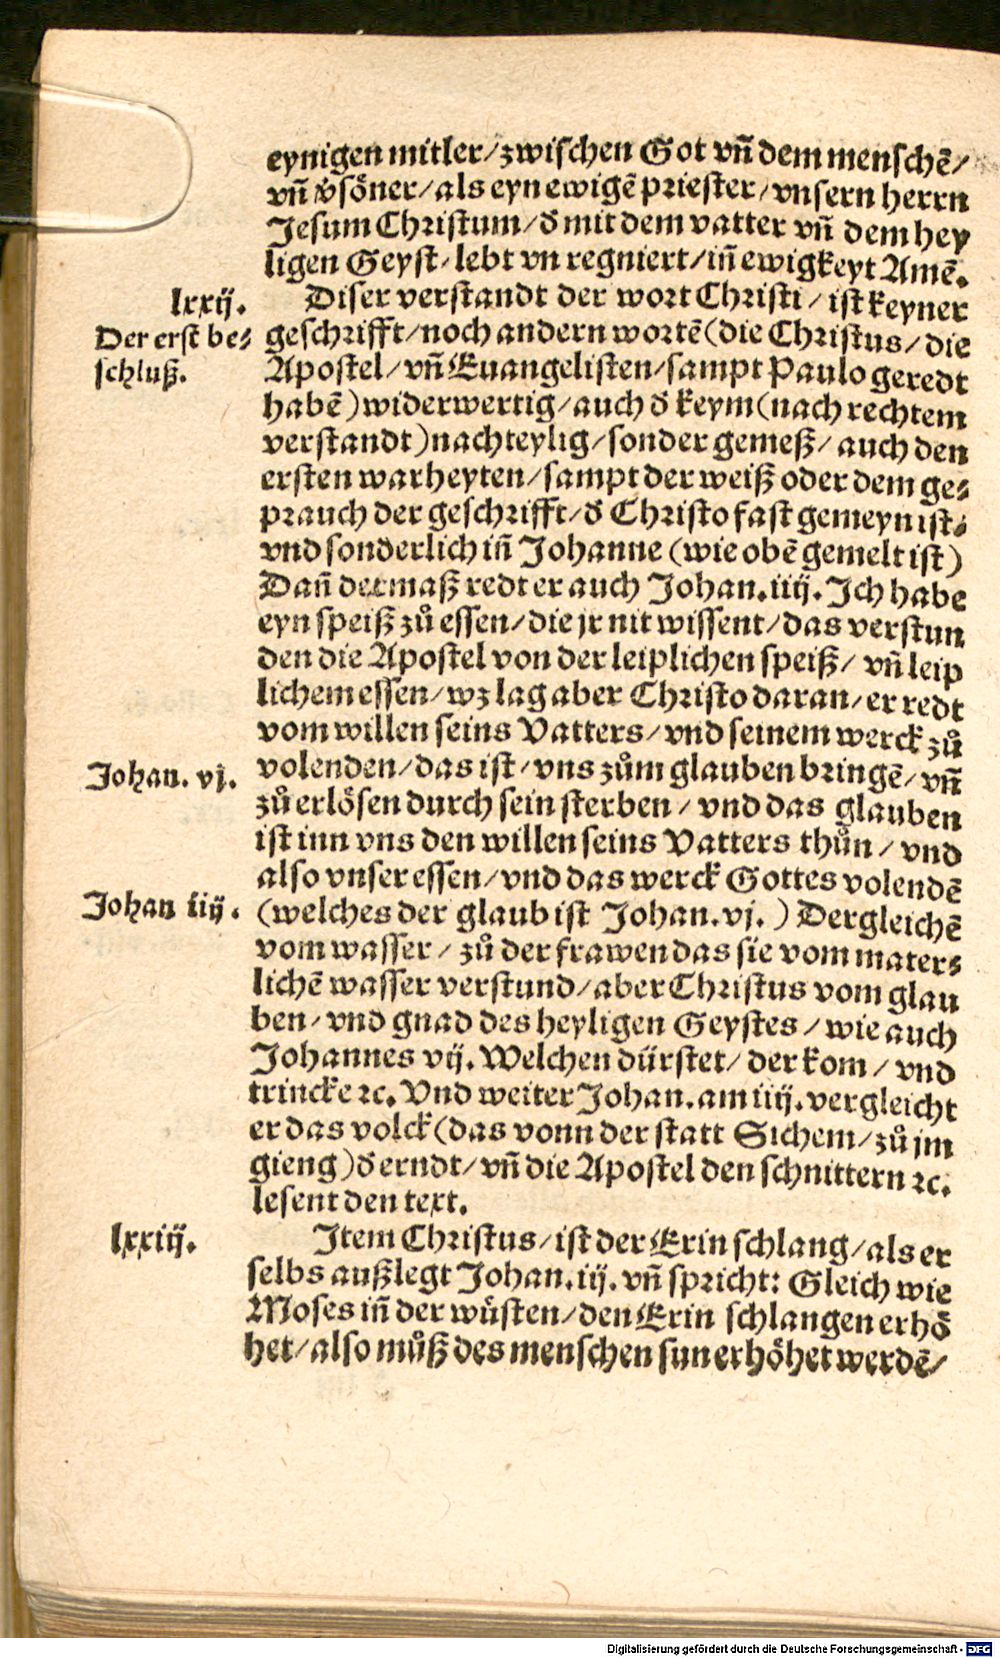 eynigen mitler/zwischen Got vn̄ dem menschē/
vn̄ v̓söner/als eyn ewigē priester/vnsern herrn
Jesum Christum/ð mit dem vatter vn̄ dem hey
ligen Geyst/lebt vn regniert/in̄ ewigkeyt Amē.
lxxij.
Diser verstandt der wort Christi/ist keyner
Der erst be⸗
schluß.
geschrifft/noch andern wortē(die Christus/die
Apostel/vn̄ Euangelisten/sampt Paulo geredt
habē)widerwertig/auch ð keym(nach rechtem
verstandt)nachteylig/sonder gemeß/auch den
ersten warheyten/sampt der weiß oder dem ge⸗
prauch der geschrifft/ð Christo fast gemeyn ist/
vnd sonderlich in̄ Johanne (wie obē gemelt ist)
Dan̄ dermaß redt er auch Johan.iiij.Ich habe
eyn speiß zů essen/die jr nit wissent/das verstun
den die Apostel von der leiplichen speiß/vn̄ leip
lichem essen/wz lag aber Christo daran/er redt
vom willen seins Vatters/vnd seinem werck zů
Johan. vj.
volenden/das ist/vns zům glauben bringē/vn̄
zů erlösen durch sein sterben/vnd das glauben
ist inn vns den willen seins Vatters thůn/vnd
also vnser essen/vnd das werck Gottes volendē
Johan iiij.
(welches der glaub ist Johan.vj.) Dergleichē
vom wasser/zů der frawen das sie vom mater⸗
lichē wasser verstund/aber Christus vom glau
ben/vnd gnad des heyligen Geystes/wie auch
Johannes vij. Welchen dürstet/der kom/vnd
trincke ꝛc. Vnd weiter Johan.am iiij.vergleicht
er das volck(das vonn der statt Sichem/zů jm
gieng)ð erndt/vn̄ die Apostel den schnittern ꝛc.
lesent den text.
lxxiij.
Item Christus/ist der Erin schlang/als er
selbs außlegt Johan.iij.vn̄ spricht: Gleich wie
Moses in̄ der wůsten/den Erin schlangen erhö
het/also můß des menschen sun erhöhet werdē/
Digitalisierung gefördert durch die Deutsche Forschungsgemeinschaft - DFG